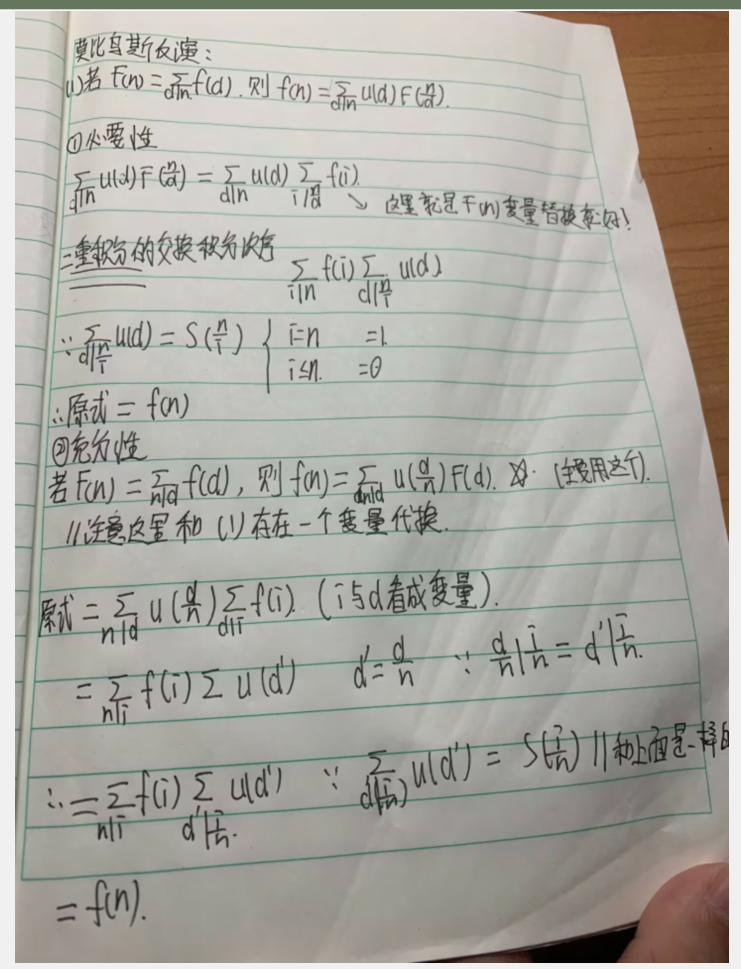 莫比乌斯反演：
(1)若 F(n) = ∑_{d|n} f(d). 则 f(n) = ∑_{d|n} u(d) F(n/d).
①必要性
∑_{d|n} u(d) F(n/d) = ∑_{d|n} u(d) ∑_{i|n/d} f(i).
↘ 这里就是F(n)变量替换就好!
二重积分的交换积分次序
∑_{i|n} f(i) ∑_{d|n/i} u(d)
∵ ∑_{d|n/i} u(d) = S(n/i) { i=n =1.
i≤n. =0
∴原式 = f(n)
②充分性
若 F(n) = ∑_{n|d} f(d), 则 f(n) = ∑_{n|d} u(d/n) F(d). ☆. (主要用这个).
//注意这里和 (1)存在一个变量代换.
原式 = ∑_{n|d} u(d/n) ∑_{d|i} f(i). (i与d看成变量).
= ∑_{n|i} f(i) ∑ u(d') d' = d/n ∵ d/n | i/n = d' | i/n.
∴ = ∑_{n|i} f(i) ∑_{d'|i/n} u(d') ∵ ∑_{d'|(i/n)} u(d') = S(i/n) //和上面是一样的
= f(n).